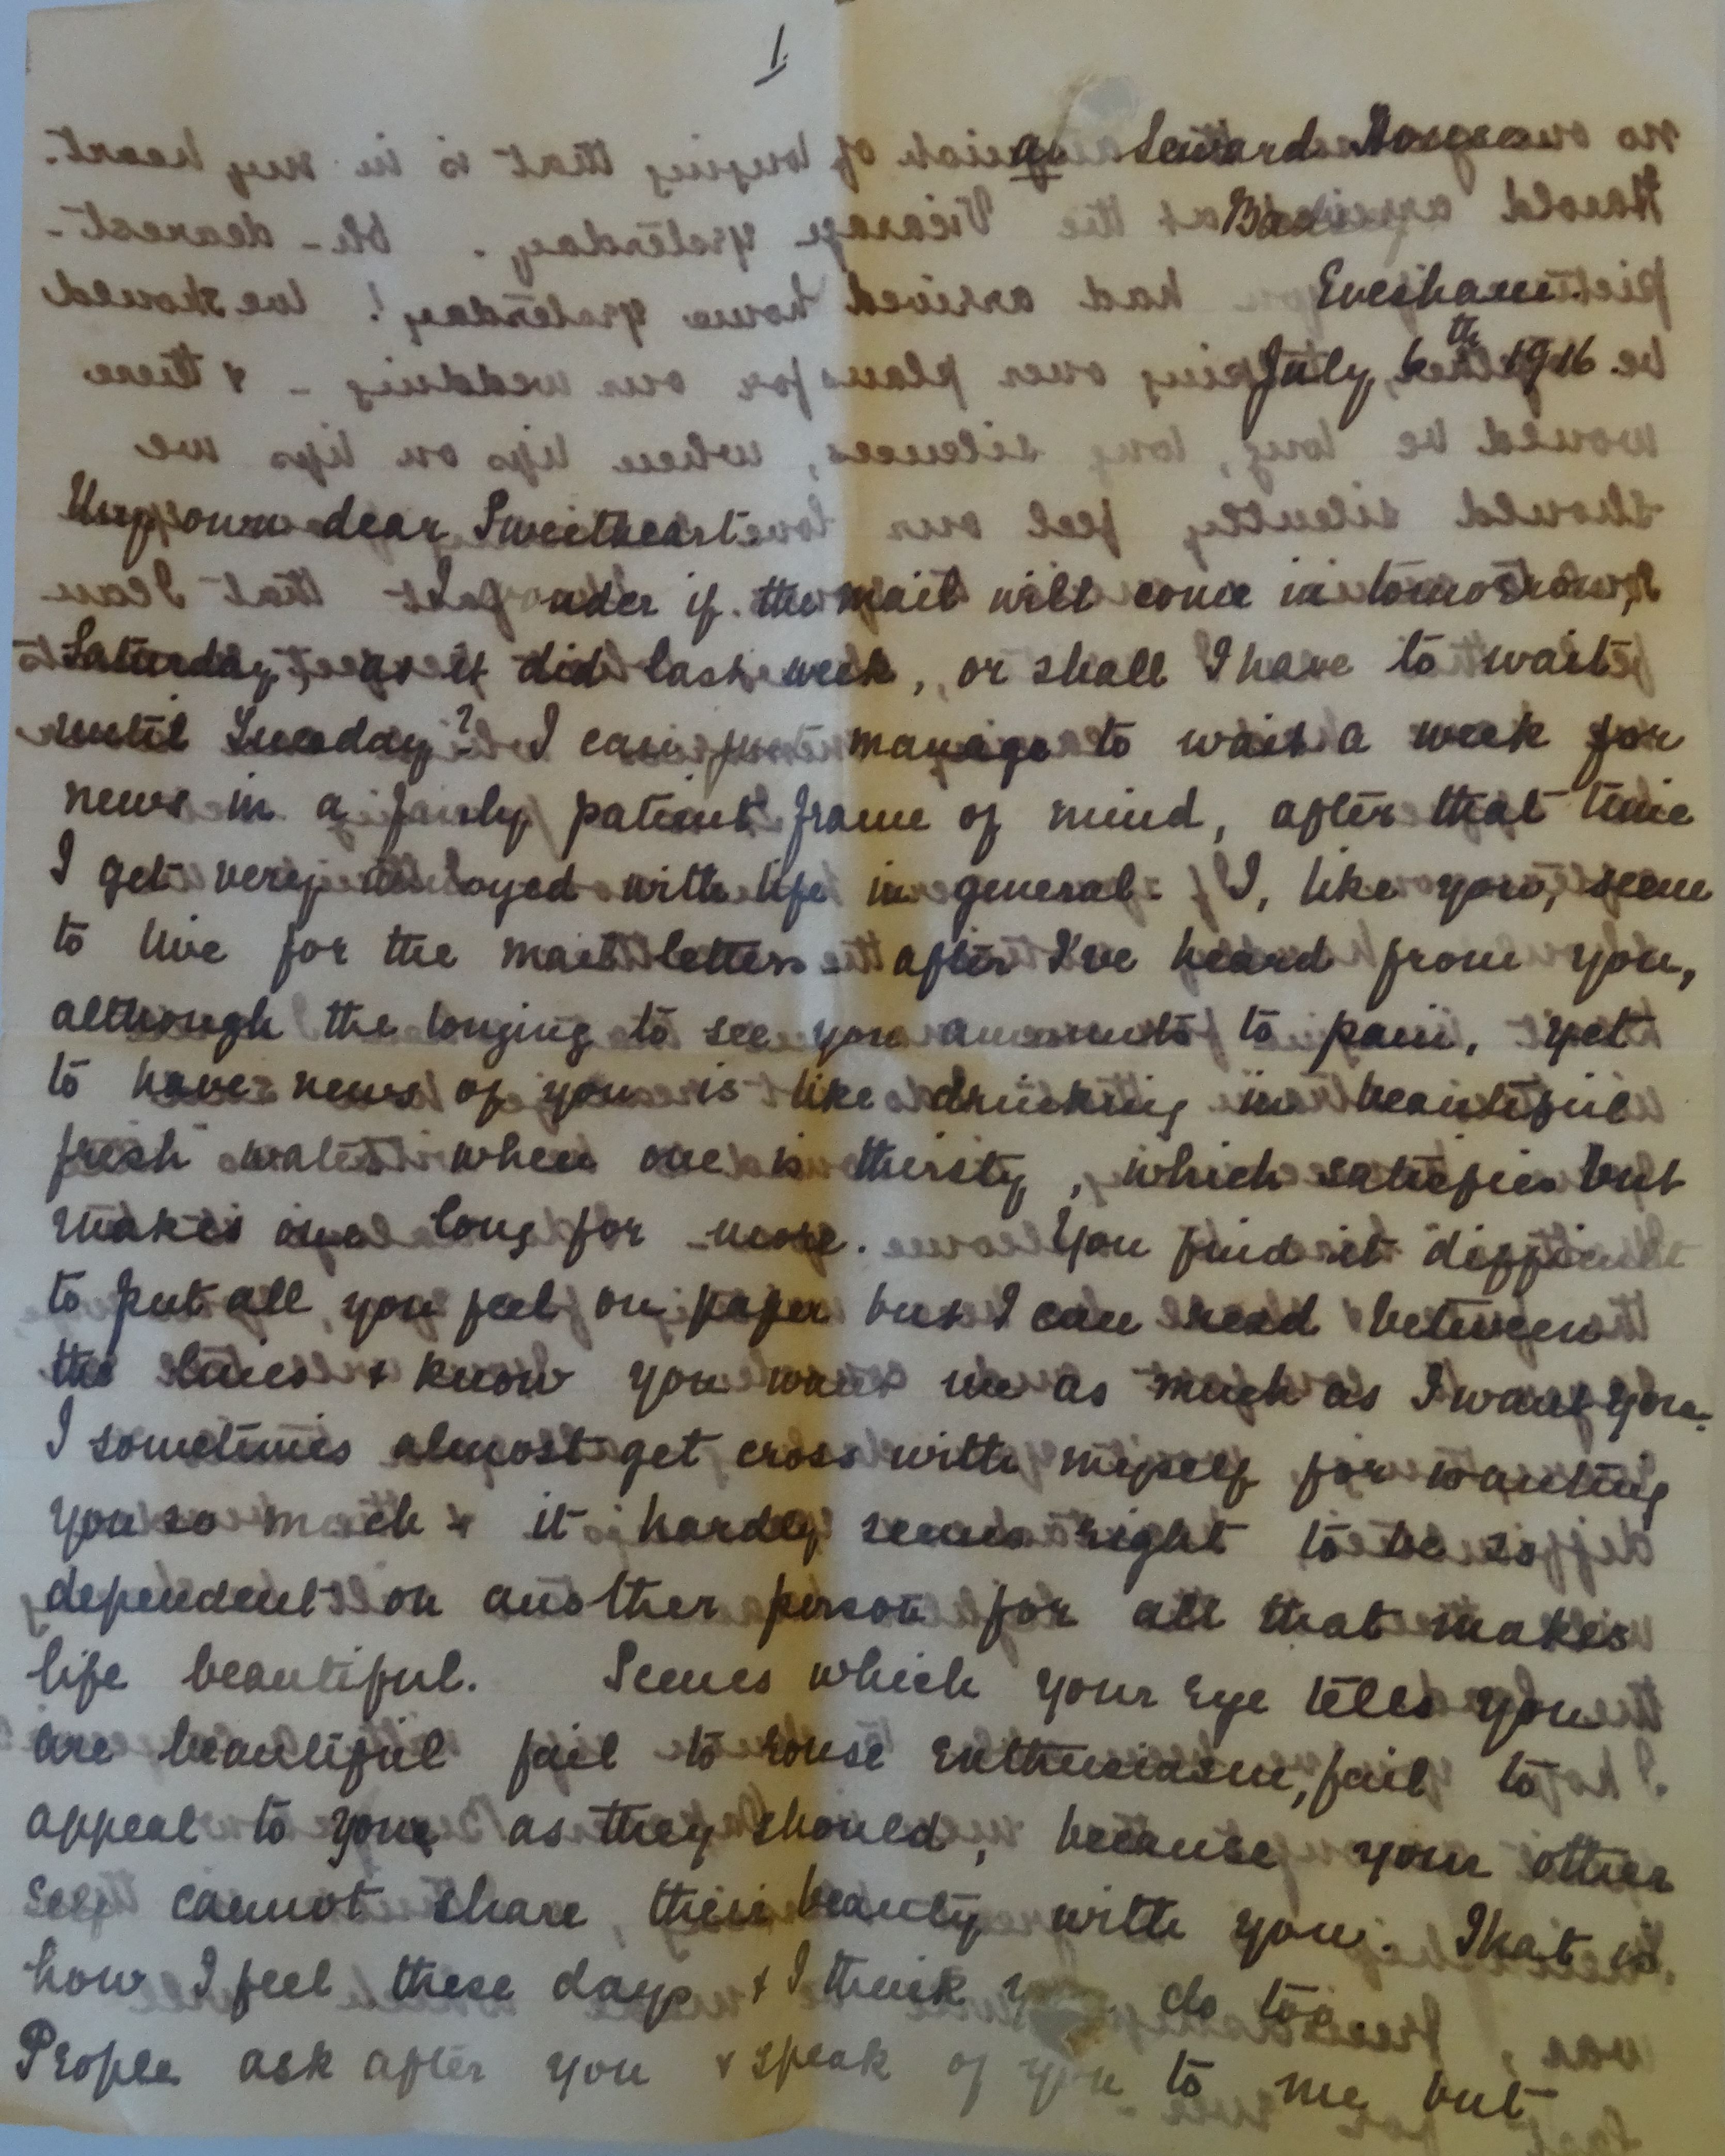 1.
Seward House
Badsey
Evesham.
July, 6th 1916.
My own dear Sweetheart
I wonder if the mail will come in tomorrow,
Saturday, as it did last week, or shall I have to wait
until Tuesday? I can just manage to wait a week for
news in a fairly patient frame of mind, after that time
I get very annoyed with life in general. I, like you, seem
to live for the mail letters after I've heard from you,
although the longing to see you amounts to pain, yet
to have news of you is like drinking in beautiful
fresh water when one is thirsty, which satisfies but
makes one long for more. You find it difficult
to put all you feel on paper but I can read between
the lines & know you want me as much as I want you.
I sometimes almost get cross with myself for wanting
you so much & it hardly seems right to be so
dependent on another person for all that makes
life beautiful. Scenes which your eye tells you
are beautiful fail to rouse enthusiasm, fail to
appeal to you as they should, because your other
self cannot share their beauty with you. That is
how I feel these days & I think you do too
People ask after you & speak of you to me but